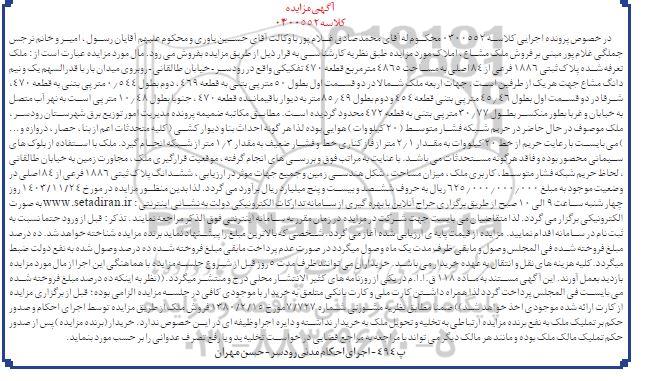 آگهی مزایده
کلاسه ۰۴۰۰۵۵۲
در خصوص پرونده اجرایی کلاسه ۰۳۰۰۵۵۲ محکوم له آقای محمد صادق غلام پور با وکالت آقای حسین یاوری و محکوم علیهم آقایان رسول ، امیر و خانم نرجس
جملگی غلام پور مبنی بر فروش ملک مشاع ، املاک مورد مزایده طبق نظریه کارشناسی به قرار ذیل از طریق مزایده بفروش می رود. مال مورد مزایده عبارت است از : ملک
تعرفه شده پلاک ثبتی ۱۸۸۶ فرعی از ۸۴ اصلی به مساحت ۴۸۶۵ مترمربع قطعه ۴۷۰ تفکیکی واقع در رودسر - خیابان طالقانی - روبروی میدان بار با قدرالسهم یک و نیم
دانگ مشاع جهت هر یک از طرفین است . جهات اربعه ملک شمالا در دو قسمت اول بطول ۵۰ متر پی بتنی به قطعه ۴۶۹ ، دوم بطول ۰/۵۴۴ متر پی بتنی به قطعه ۴۷۰،
شرقا در دو قسمت اول بطول ۴۵/۴۶ متر پی بتنی قطعه ۴۵۴ و دوم بطول ۸۵/۴۹ متر به دیوار باقیمانده قطعه ۴۷۰، جنوبا بطول ۱۰/۴۸ متر پی است به نهر آب متصل
به خیابان و غربا بطور منکسر بطول ۳۰/۷۷ متر پی بتنی به قطعه ۴۷۲ محدود گردیده است. مطابق مکاتبه ضمیمه پرونده مدیریت امور توزیع برق شهرستان رودسر ،
ملک موصوف در حال حاضر در حریم شبکه فشار متوسط (۲۰ کیلووات) هوایی بوده لذا هر گونه احداث بنا و دیوار کشی (کلیه مستحدثات اعم از بنا ، حصار ، دروازه و ...
) می بایست با رعایت حریم از خط ۲۰ کیلووات به مقدار ۲/۱ متر از فاز کناری خط و فشار ضعیف به مقدار ۱/۳ متر از شبکه انجام گیرد. ملک با استفاده از بلوک های
سیمانی محصور بوده و فاقد هرگونه مستحدثات می باشد. با عنایت به مراتب فوق و بررسی های انجام گرفته ، موقعیت قرارگیری ملک ، مجاورت زمین به خیابان طالقانی
، لحاظ حریم شبکه فشار متوسط ، کاربری ملک ، میزان مساحت ، شکل هندسی زمین و جمیع جهات موثر در ارزیابی ، ششدانگ پلاک ثبتی ۱۸۸۶ فرعی از ۸۴ اصلی در
وضعیت موجود به مبلغ ۶۲۵/۰۰۰/۰۰۰/۰۰۰ ریال به حروف ششصد و بیست و پنج میلیارد ریال برآورد می گردد. لذا بدین منظور مزایده در مورخ ۱۴۰۳/۱۱/۲۴ روز
چهارشنبه ساعت ۹ الی ۱۰ صبح از طریق برگزاری حراج آنلاین با بهره گیری از سامانه تدارکات الکترونیکی دولت به نشانی اینترنتی : www.setadiran.ir به صورت
الکترونیکی برگزار می گردد. لذا متقاضیان می بایست جهت شرکت در مزایده در زمان مقرر به سامانه اینترنتی فوق الذکر مراجعه نمایند . تذکر : قبل از ورود حتما نسبت به
ثبت نام در سامانه اقدام نمایید. مزایده از قیمت پایه ی ارزیابی شده آغاز می گردد، شخصی که بالاترین مبلغ را پیشنهاد نماید برنده مزایده شناخته خواهد شد. ده درصد
مبلغ فروخته شده فی المجلس وصول و مابقی ظرف مدت یک ماه وصول میگردد در صورت عدم پرداخت مابقی مبلغ فروخته شده ده درصد وصول شده به نفع دولت ضبط
میگردد. کلیه هزینه های نقل و انتقال به عهده خریدار می باشد . خریداران می توانند ظرف مدت ۵ روز قبل از شروع جلسه مزایده با هماهنگی این اجرا از مال مورد مزایده
بازدید بعمل آورند . این آگهی مستند به ماده ۱۱۸ ق.ا.ا.م در یکی از روزنامه های کثیر الانتشار محلی درج و منتشر میگردد. ((نظر به اینکه ده درصد مبلغ فروخته شده
می بایست فی المجلس پرداخت گردد لذا همراه داشتن کارت ملی و کارت بانکی متعلق به خریدار با موجودی کافی در جلسه مزایده الزامی بوده؛ قبل از برگزاری مزایده
از کارت ارائه شده موجودی اخذ خواهد شد)) ضمنا مطابق نظریه مشورتی شماره ۷/۷۲۷ مورخ ۱۳۸۰/۲/۱۵ فروش ملک از طریق مزایده توسط اجرای احکام و صدور
حکم بر تملیک ملک به نفع برنده مزایده ارتباطی به تخلیه و تحویل ملک به خریدار نداشته و دایره اجرا وظیفه ای در این خصوص ندارد. خریدار (برنده مزایده) پس از صدور
حکم تملیک مالک ملک بوده و مانند هر مالک دیگر می تواند با مراجعه به مراجع قضایی در خواست تخلیه ید و یا رفع تصرف عدوانی را بر حسب مورد بنماید.
پ ۴۶۴ - اجرای احکام مدنی رودسر - حسن مهران
۰۲۱-۸۸۳۴۹۶۷۰-۵